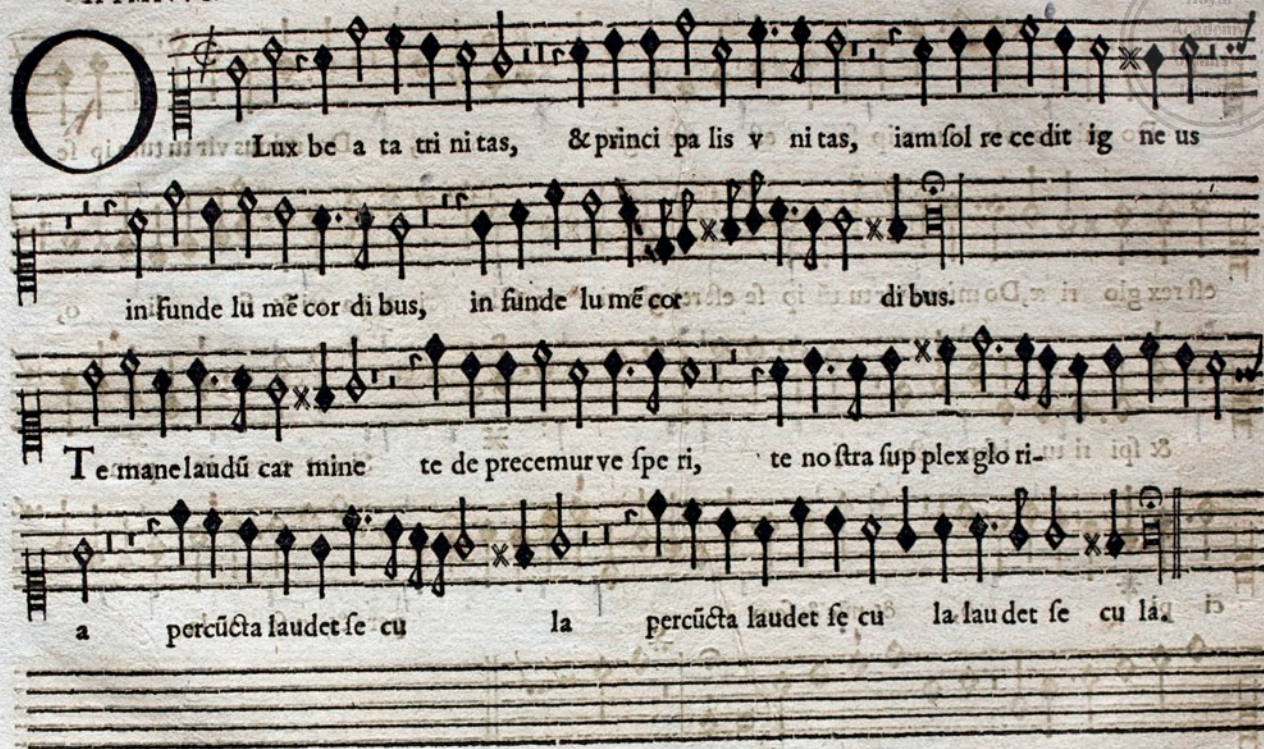 O Lux be a ta tri ni tas, & princi pa lis v ni tas, iam ſol re ce dit ig ne us
in funde lu mē cor di bus, in funde lu mē cor di bus.
Te mane laudū car mine te de precemur ve ſpe ri, te no ſtra ſup plex glo ri-
a percūcta laudet ſe cu la percūcta laudet ſe cu la lau det ſe cu la.